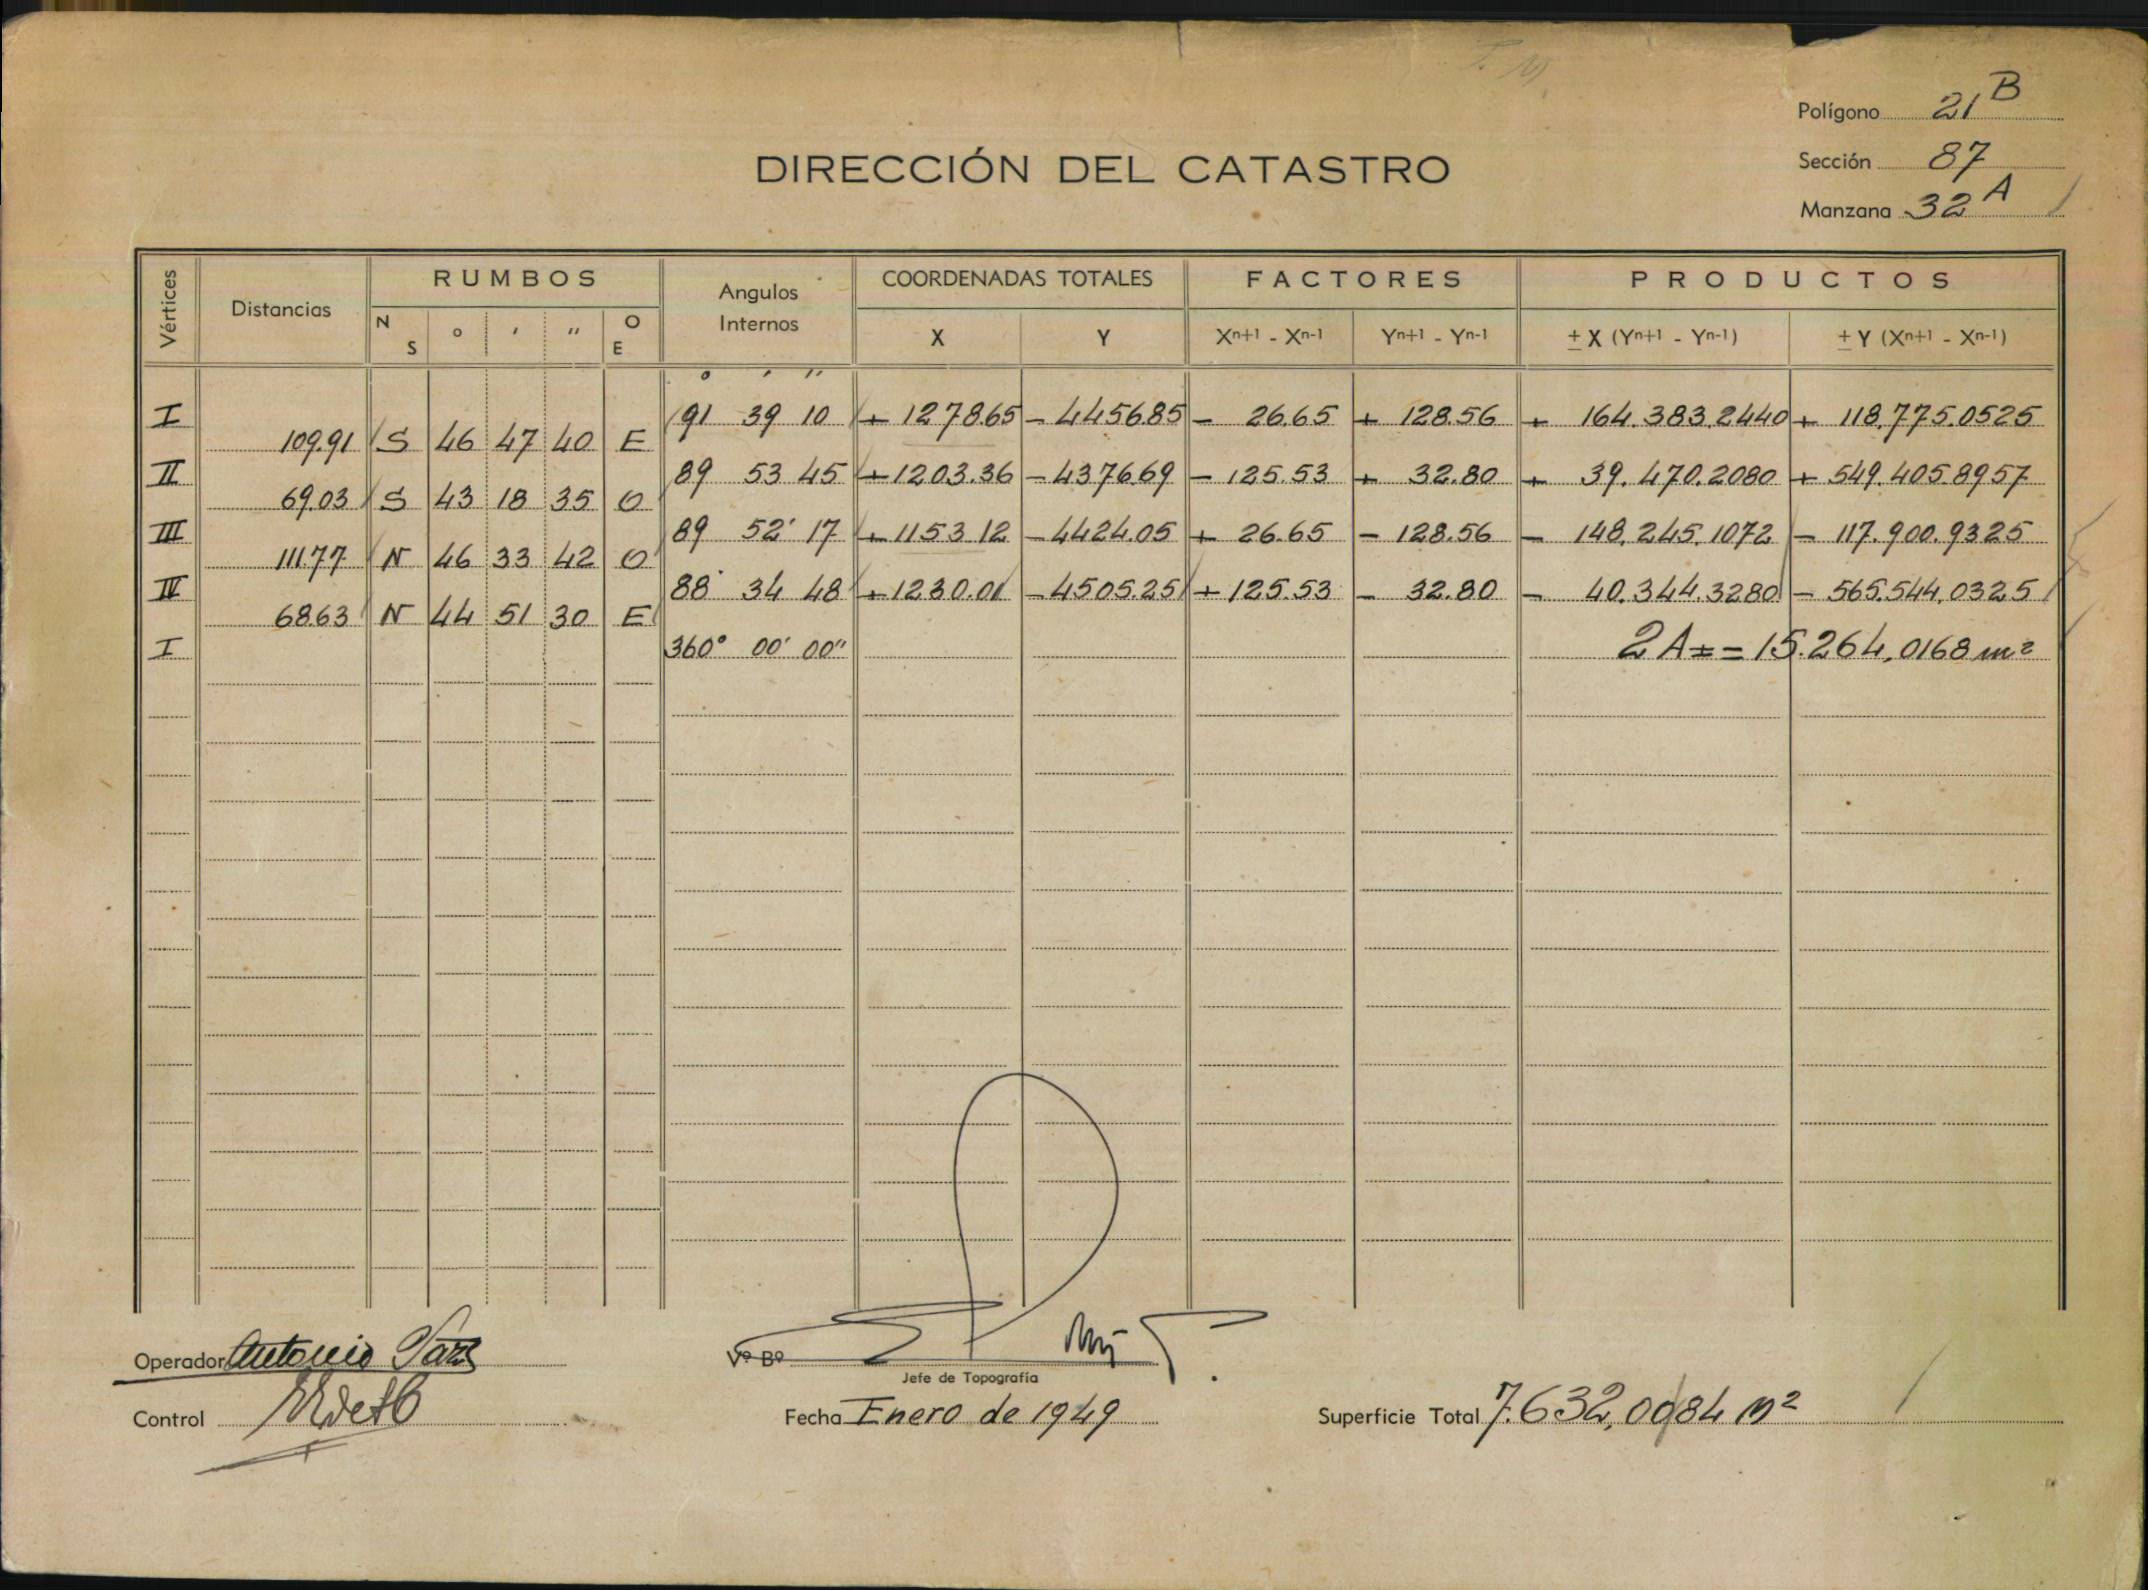 Polígono 21 B
DIRECCIÓN DEL CATASTRO
Sección 87
Manzana 32 A
Vértices Distancias RUMBOS Angulos Internos COORDENADAS TOTALES FACTORES PRODUCTOS
N S o ' " O E X Y Xn+1 - Xn-1 Yn+1 - Yn-1 ± X (Yn+1 - Yn-1) ± Y (Xn+1 - Xn-1)
° ' "
I 91 39 10 + 1278.65 - 4456.85 - 26.65 + 128.56 + 164.383.2440 + 118.775.0525
109.91 S 46 47 40 E
II 89 53 45 + 1203.36 - 4376.69 - 125.53 + 32.80 + 39.470.2080 + 549.405.8957
69.03 S 43 18 35 O
III 89 52' 17 + 1153.12 - 4424.05 + 26.65 - 128.56 - 148.245.1072 - 117.900.9325
111.77 N 46 33 42 O
IV 88 34 48 + 1230.01 - 4505.25 + 125.53 - 32.80 - 40.344.3280 - 565.544.0325
68.63 N 44 51 30 E
I 360° 00' 00" 2A ± = 15.264,0168 m²
Operador Antonio
Vº Bº
Jefe de Topografía
Control
Fecha Enero de 1949
Superficie Total 7.632,0084 m²